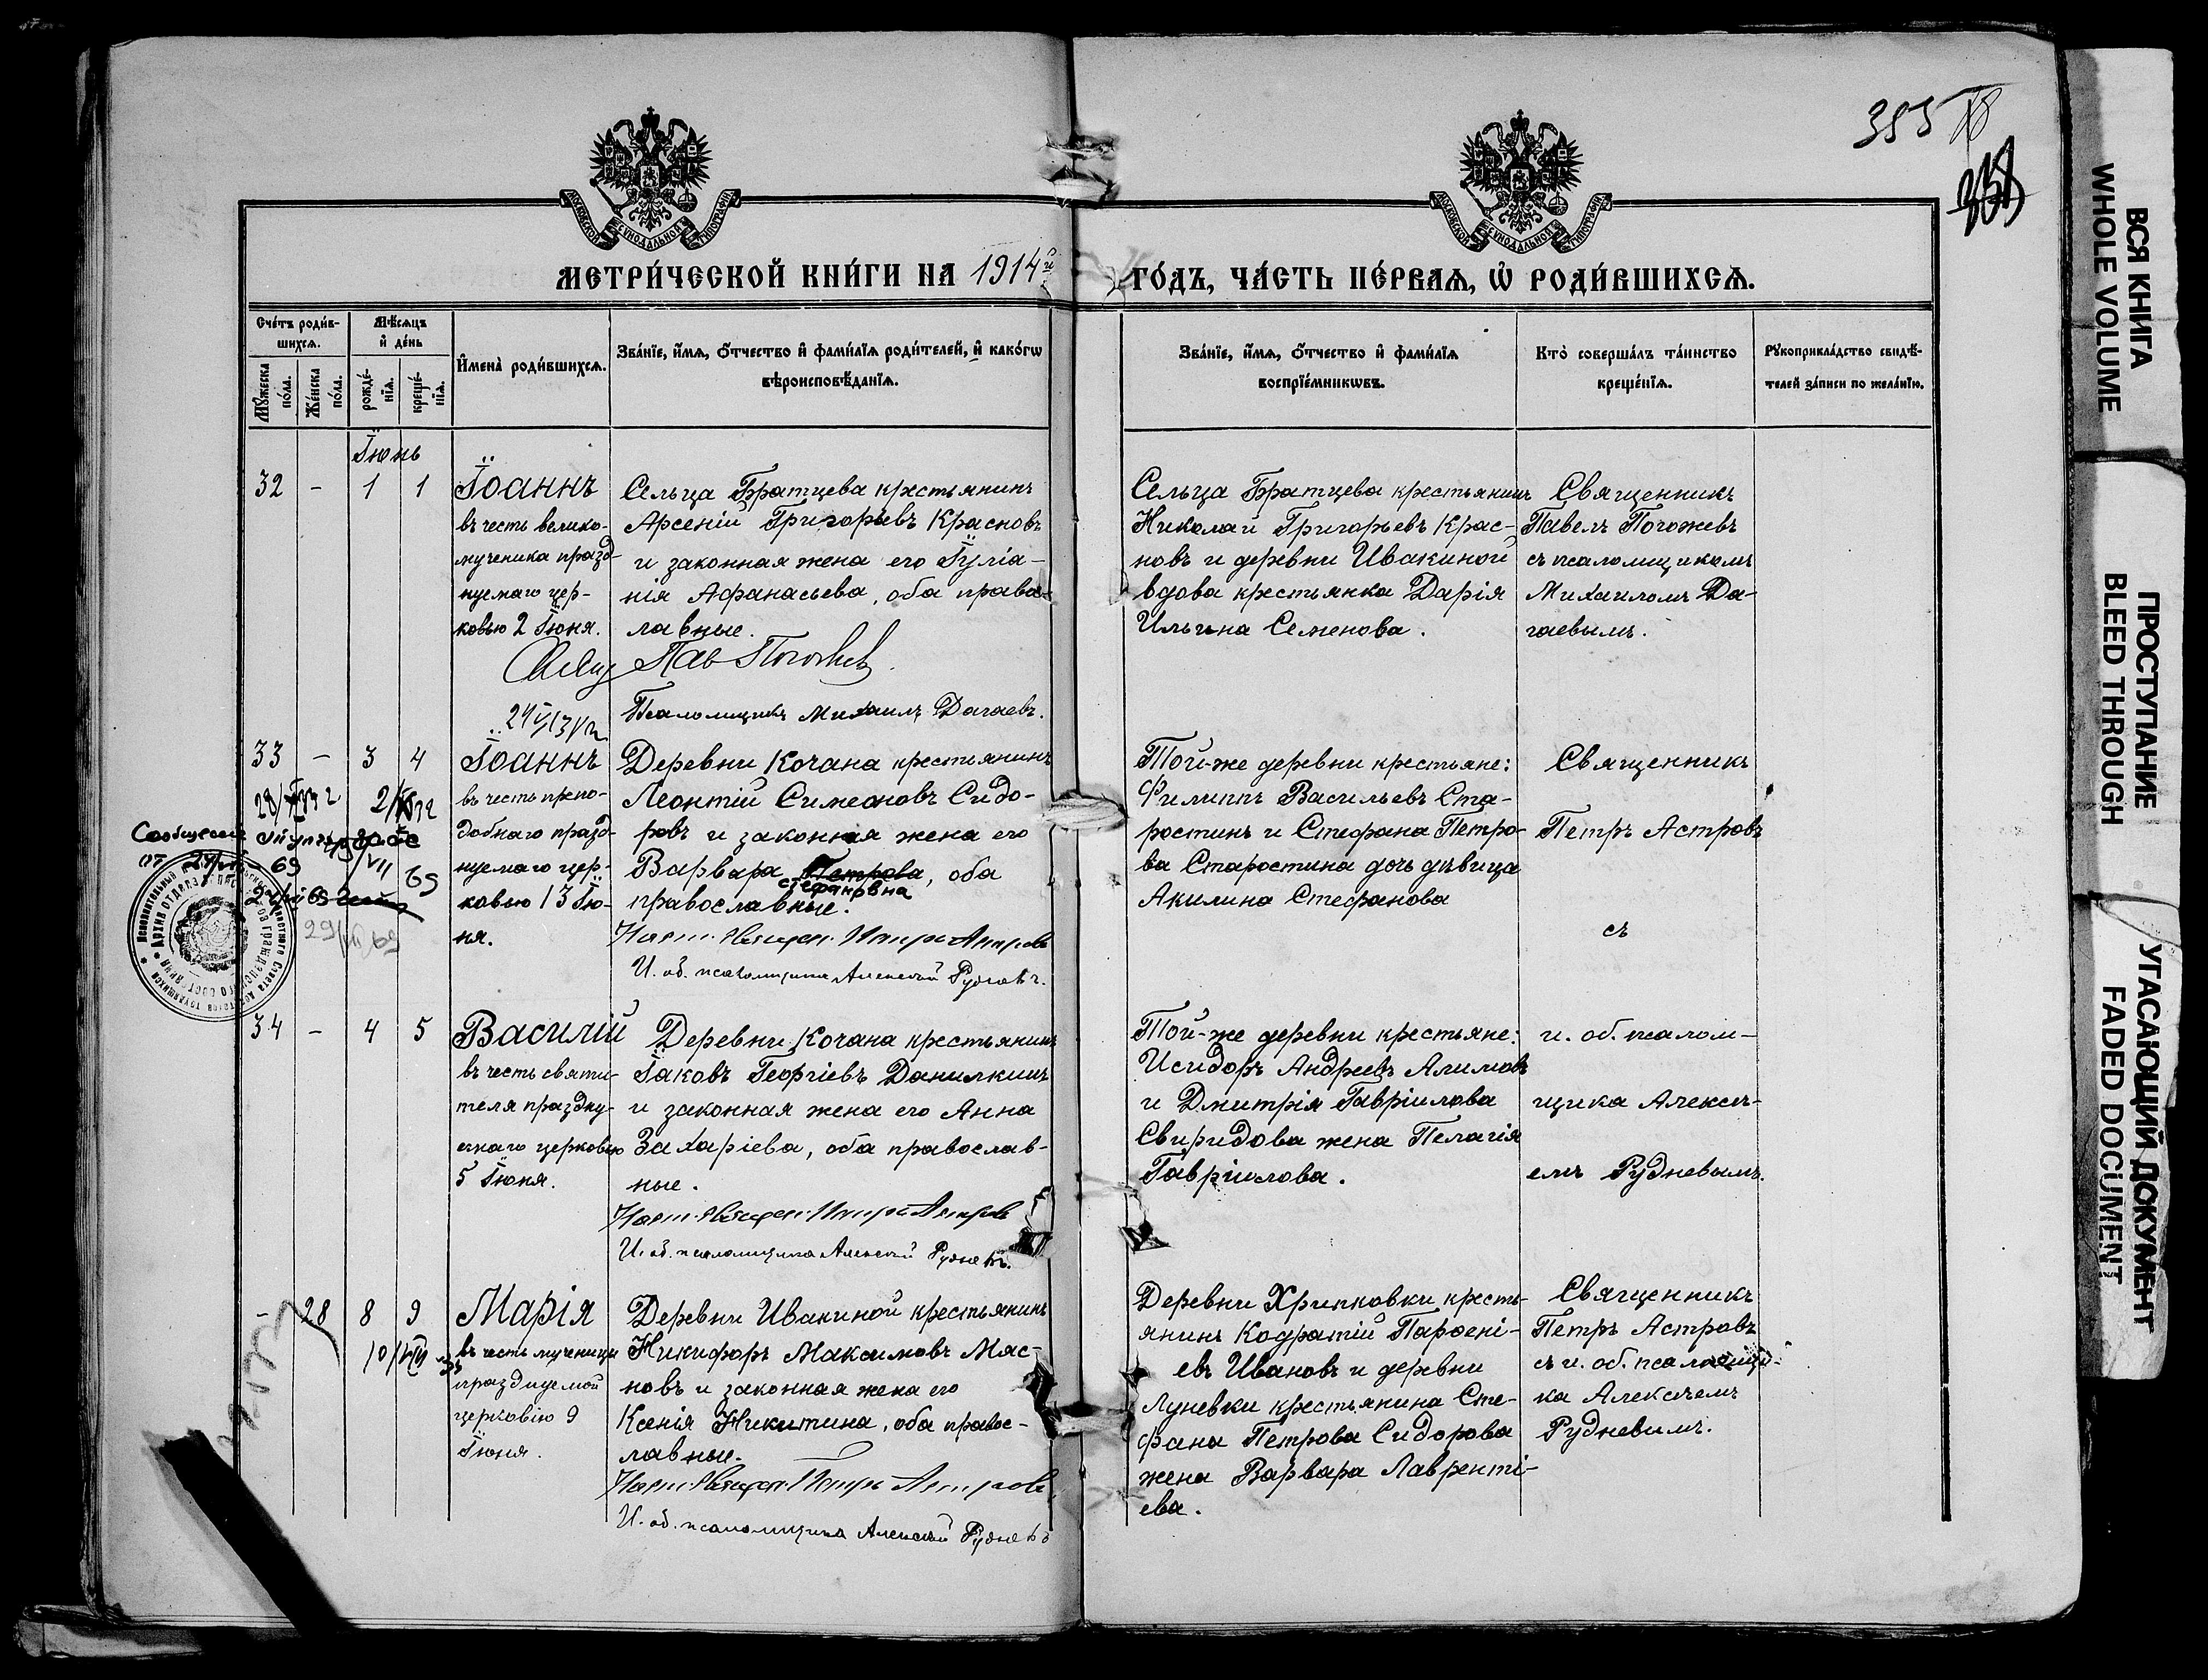 355
МЕТРИ́ЧЕСКОЙ КНИ́ГИ НА 1914й
ГО́ДЪ, ЧА́СТЬ ПЕ́РВАѦ, Ѡ҆ РОДИ́ВШИХСѦ.
МОСКОВСКОЙ СѴНОДАЛЬНОЙ ТИПОГРАФІИ
МОСКОВСКОЙ СѴНОДАЛЬНОЙ ТИПОГРАФІИ
Сче́тъ роди́в-
шихсѧ.
Мѣ́сѧцъ
и҆ де́нь
Мꙋ́жеска
по́ла.
Же́нска
по́ла.
рожде́-
нїѧ.
креще́-
нїѧ.
И҆мена̀ роди́вшихсѧ.
Зва́нїе, и҆́мѧ, ѻ҆́тчество и҆ фами́лїѧ роди́телей, и҆ како́гѡ
вѣроисповѣ́данїѧ.
Зва́нїе, и҆́мѧ, ѻ҆́тчество и҆ фами́лїѧ
воспрїе́мникѡвъ.
Кто̀ соверша́лъ та́инство
креще́нїѧ.
Рꙋкоприкла́дство свидѣ́-
телей за́писи по жела́нїю.
Іюнь
32 - 1 1
Іоаннъ
въ честь велико-
мученика празд-
нуемаго цер-
ковью 2 Іюня.
Сельца Братцева крестьянинъ
Арсеній Григорьевъ Красновъ
и законная жена его Іуліа-
нія Афанасьева, оба правос-
лавные.
Свящ Пав Погожев
Псаломщикъ Михаилъ Дагаевъ.
Сельца Братцева крестьянинъ
Николай Григорьевъ Крас-
новъ и деревни Ивакиной
вдова крестьянка Дарія
Ильина Семенова.
Священникъ
Павелъ Погожевъ
съ псаломщикомъ
Михаиломъ Да-
гаевымъ.
33 - 3 4
Іоаннъ
въ честь препо-
добнаго празд-
нуемаго цер-
ковью 13 Ію-
ня.
Деревни Кочана крестьянинъ
Леонтій Симеоновъ Сидо-
ровъ и законная жена его
Варвара Петрова, оба
Стефановна
православные.
Наст. Священ. Петръ Астровъ
И. об. псаломщика Алексѣй Рудневъ.
Той-же деревни крестьяне:
Филиппъ Васильевъ Ста-
ростинъ и Стефана Петро-
ва Старостина дочь дѣвица
Акилина Стефанова
Священникъ
Петръ Астровъ
съ
Сообщение
69
34 - 4 5
Василій
въ честь святи-
теля праздну-
емаго церковью
5 Іюня.
Деревни Кочана крестьянинъ
Іаковъ Георгіевъ Данилкинъ
и законная жена его Анна
Захаріева, оба православ-
ные.
Наст. Священ. Петръ Астровъ
И. об. псаломщика Алексѣй Рудневъ.
Той-же деревни крестьяне:
Исидоръ Андреевъ Алимовъ
и Дмитрія Гавріилова
Свиридова жена Пелагія
Гавріилова.
и. об. псалом-
щика Алексѣ-
емъ Рудневымъ.
- 28 8 9
Марія
въ честь мученицы
празднуемой
церковію 9
Іюня.
Деревни Ивакиной крестьянинъ
Никифоръ Максимовъ Мяс-
новъ и законная жена его
Ксенія Никитина, оба правос-
лавные.
Наст. Священ. Петръ Астровъ
И. об. псаломщика Алексѣй Рудневъ
Деревни Хрипковки кресть-
янинъ Кодратій Парѳені-
евъ Ивановъ и деревни
Луневки крестьянина Сте-
фана Петрова Сидорова
жена Варвара Лавренті-
ева.
Священникъ
Петръ Астровъ
съ и. об. псаломщи-
ка Алексѣемъ
Рудневымъ.
ВСЯ КНИГА
WHOLE VOLUME
ПРОСТУПАНИЕ
BLEED THROUGH
УГАСАЮЩИЙ ДОКУМЕНТ
FADED DOCUMENT